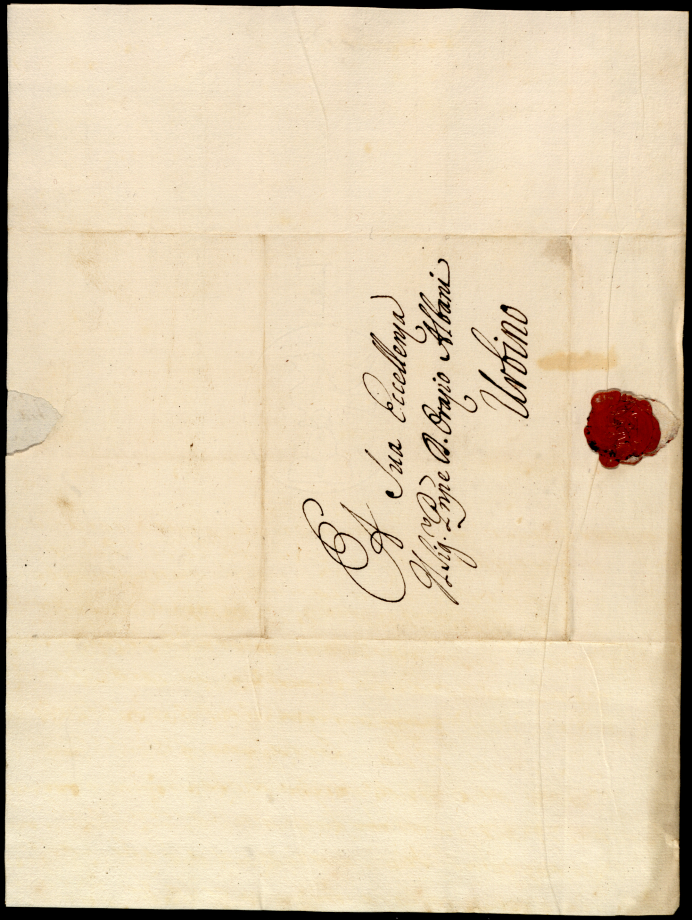 A Sua Eccellenza
Il Sig. Pnpe D. Orazio Albani
Urbino